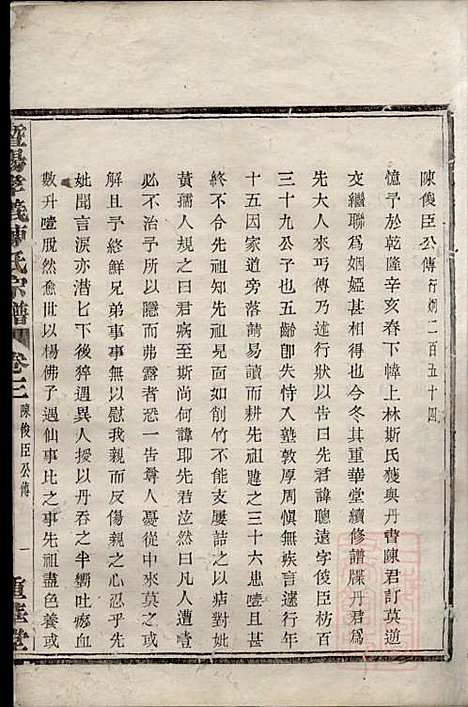 陳俊臣公傳行炯二百五十四
憶予於乾隆辛亥春下幃上林斯氏獲與丹書陳君訂莫逆
交繼聯為姻婭甚相得也今其重華堂續修譜牒丹君為
先大人來丐傳予以不文辭
三十九公子也五齡即失恃入塾敦厚周慎無疾言遽行年
十五因家道旁落舊易讀而耕先祖韙之三十六患噎且甚
終不令先祖知先祖見面如削竹不能支屢詰之以痁對姊
黃孺人規之曰君病至斯尚何諱耶先君泫然曰凡人遭噎
必不治予所以隱而弗露者恐一告尊人憂從中來莫之或
解且予終鮮兄弟事事三無以慰我親而反傷親之心忍乎先
妣聞言淚亦潸七下後猝遇異人授以丹吞之半嚮吐瘀血
數升噎脫然愈世以楊佛子遇仙事比之事先祖盡色養或
暨陽孝義陳氏宗譜
卷三
陳俊臣公傳
一
重華堂